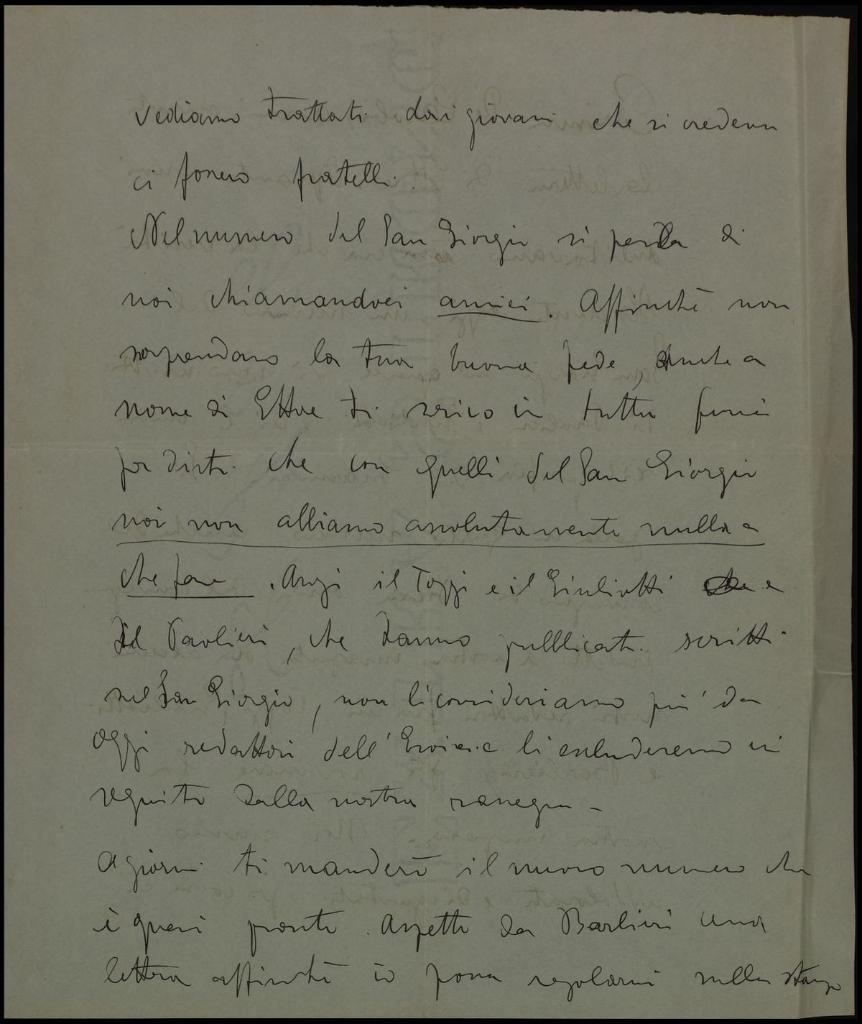 vediamo trattati dai giovani che si credeva
ci fossero fratelli.
Nel numero del San Giorgio si parla di
noi chiamandoci amici. Affinché non
sorprendano la tua buona fede, anche a
nome di Ettore ti scrivo in tutta furia
per dirti che con quelli del San Giorgio
noi non abbiamo assolutamente nulla a
che fare. Anzi il Tozzi e il Giuliotti e
il Paolieri, che hanno pubblicati scritti
sul San Giorgio, non li consideriamo più da
oggi redattori dell'Eroica e li escluderemo in
seguito dalla nostra rassegna -
A giorni ti manderò il nuovo numero che
è quasi pronto. Aspetto da Barbieri una
lettera affinché io possa regolarmi sulla